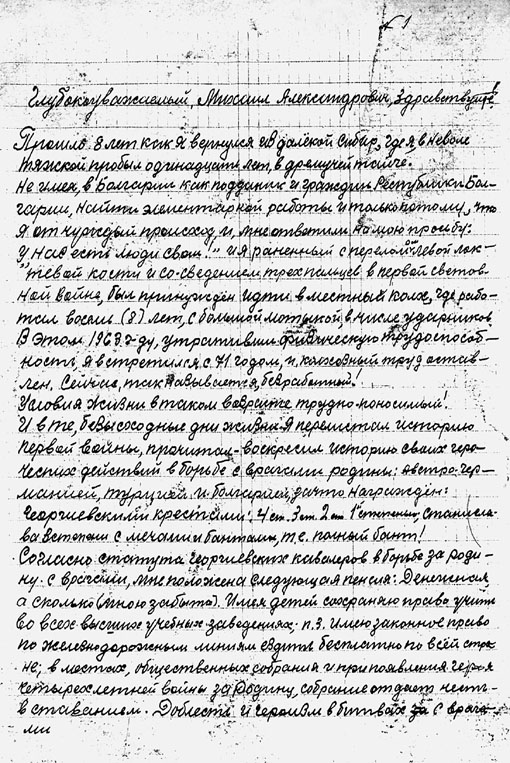 № 1
Глубокоуважаемый, Михаил Александрович, Здравствуйте!
Прошло 8 лет как я вернулся из далёкой Сибир, где я в неволе
тяжской пробыл одинадцать лет, в дремучей тайге.
Не имея, в Болгарии как подданик и граждан Республики Бол-
гарии, найти элементаркой работы и только потому, что
я от чуждый происход, и, мне ответили на мою просьбу:
У нас есть люди свои!" и я раненный с переломом левой лок-
"тевой кости и со-сведением трех пальцев в первой светов-
ной войне, был принужден идти в местный колх, где рабо-
тал восемь (8) лет, с большой мотыкой, в числе ударников.
В этом 1968 г-ду, утративши физическую трудоспособ-
ность, я встретился с 71 годом, и, колхозный труд остав-
лен. Сейчас, так называется, безработный!
Условия жизни в таком возрасте трудно-поносимый!
И в те, безысходные дни жизни я перелистал историю
первой войны, прочитал-воскресил историю своих геро-
ческих действий в борьбе с врагами родины: австро-гер-
манией, турцией и болгарией, за что награжден:
Георгиевскими крестами: 4 ст. 3 ст. 2 ст. 1 степени, Станисла-
ва 3 степени с мечами и бантами, т.е. полный бант!
Согласно статута георгиевских кавалеров в борьбе за роди-
ну с врагами, мне положена следующая пенсия: Денежная
а сколько (мною забыто). Имея детей сохраняю право учить
во всех высших учебных заведениях; п.3. Имею законное право
по железнодорожным линиям ездить бесплатно по всей стра-
не; в местах, общественных собрания и при появления героя
четырехлетней войны за Родину, собрание отдает честь-
вставанием. Доблесть и героизм в битвах за с врага-
ми